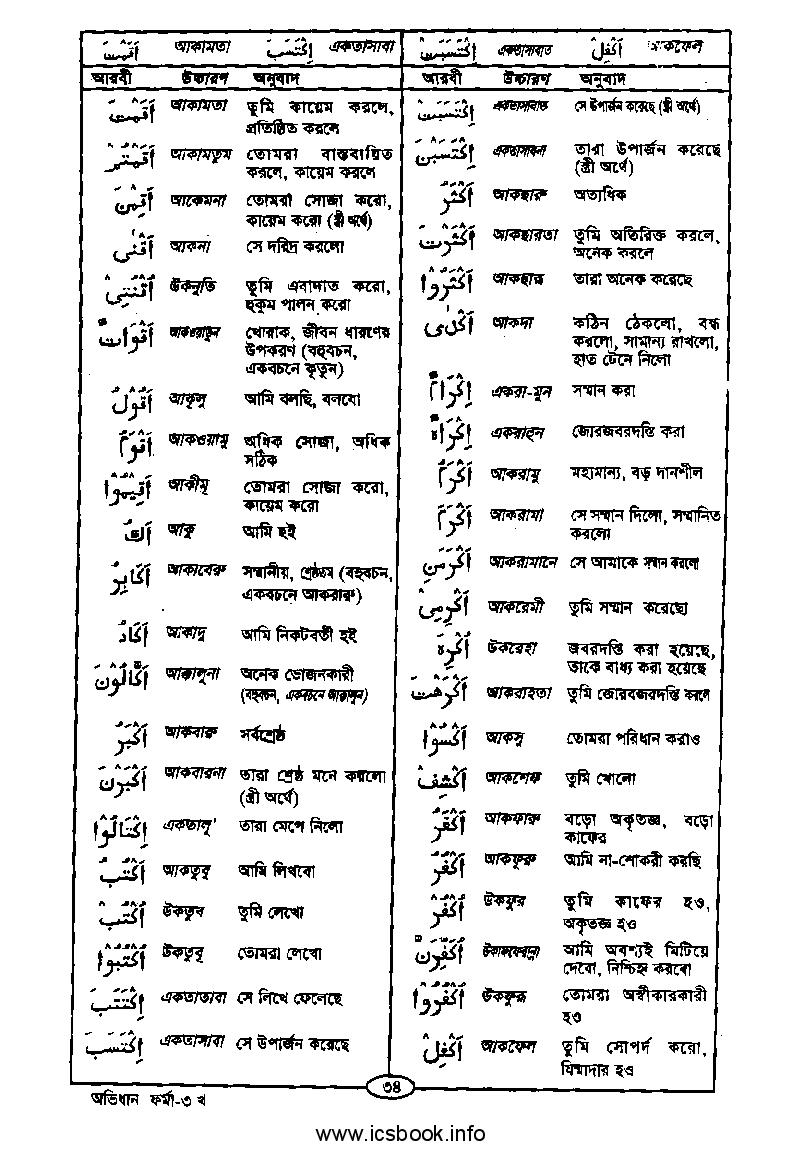 أَقَمْتَ আকামতা اِكْتَسَبَ একতাসাবা
اِكْتَسَبَتْ একতাসাবাত أَكْفِلْ আকফেল
আরবী উচ্চারণ অনুবাদ
أَقَمْتَ আকামতা তুমি কায়েম করলে,
প্রতিষ্ঠিত করলে
أَقَمْتُمْ আকামতুম তোমরা বাস্তবায়িত
করলে, কায়েম করলে
أَقِمْنَ আকেমনা তোমরা সোজা করো,
কায়েম করো (স্ত্রী অর্থে)
أَقْنٰى আকনা সে দরিদ্র করলো
اُقْنُتِىْ উকনুতি তুমি এবাদাত করো,
হুকুম পালন করো
أَقْوَاتٌ আকওয়াতুন খোরাক, জীবন ধারণের
উপকরণ (বহুবচন,
একবচনে কুতুন)
أَقُوْلُ আকূলু আমি বলছি, বলবো
أَقْوَمُ আকওয়ামু অধিক সোজা, অধিক
সঠিক
أَقِيْمُوْا আকীমূ তোমরা সোজা করো,
কায়েম করো
أَكُ আকু আমি হই
أَكَابِرُ আকাবেরু সম্মানীয়, শ্রেষ্ঠতম (বহুবচন,
একবচনে আকবারু)
أَكَادُ আকাদু আমি নিকটবর্তী হই
أَكَّالُوْنَ আক্কালূনা অনেক ভোজনকারী
(বহুবচন, একবচনে আক্কালুন)
أَكْبَرُ আকবারু সর্বশ্রেষ্ঠ
أَكْبَرْنَ আকবারনা তারা শ্রেষ্ঠ মনে করলো
(স্ত্রী অর্থে)
اِكْتَالُوْا একতালূ তারা মেপে নিলো
أَكْتُبُ আকতুবু আমি লিখবো
اُكْتُبْ উকতুব তুমি লেখো
اُكْتُبُوْا উকতুবূ তোমরা লেখো
اِكْتَتَبَ একতাতাবা সে লিখে ফেলেছে
اِكْتَسَبَ একতাসাবা সে উপার্জন করেছে
আরবী উচ্চারণ অনুবাদ
اِكْتَسَبَتْ একতাসাবাত সে উপার্জন করেছে (স্ত্রী অর্থে)
اِكْتَسَبْنَ একতাসাবনা তারা উপার্জন করেছে
(স্ত্রী অর্থে)
أَكْثَرُ আকছারু অত্যধিক
أَكْثَرْتَ আকছারতা তুমি অতিরিক্ত করলে,
অনেক করলে
أَكْثَرُوْا আকছারূ তারা অনেক করেছে
أَكْدٰى আকদা কঠিন ঠেকলো, বন্ধ
করলো, সামান্য রাখলো,
হাত টেনে নিলো
اِكْرَامٌ একরা-মুন সম্মান করা
اِكْرَاهٌ একরাহুন জোরজবরদস্তি করা
أَكْرَمُ আকরামু মহামান্য, বড় দানশীল
أَكْرَمَ আকরামা সে সম্মান দিলো, সম্মানিত
করলো
أَكْرَمَنِ আকরামানে সে আমাকে সম্মান করলো
أَكْرِمِىْ আকরেমী তুমি সম্মান করেছো
أُكْرِهَ উকরেহা জবরদস্তি করা হয়েছে,
তাকে বাধ্য করা হয়েছে
أَكْرَهْتَ আকরাহতা তুমি জোরজবরদস্তি করলে
اُكْسُوْا আকসূ তোমরা পরিধান করাও
اَكْشِفْ আকশেফ তুমি খোলো
أَكْفَرُ আকফারু বড়ো অকৃতজ্ঞ, বড়ো
কাফের
أَكْفُرُ আকফুরু আমি না-শোকরী করছি
اُكْفُرْ উকফুর তুমি কাফের হও,
অকৃতজ্ঞ হও
أُكَفِّرَنَّ উকাফফেরান্না আমি অবশ্যই মিটিয়ে
দেবো, নিশ্চিহ্ন করবো
اُكْفُرُوْا উকফুরূ তোমরা অস্বীকারকারী
হও
أَكْفِلْ আকফেল তুমি সোপর্দ করো,
যিম্মাদার হও
৩৪
অভিধান ফর্মা-৩ খ
www.icsbook.info